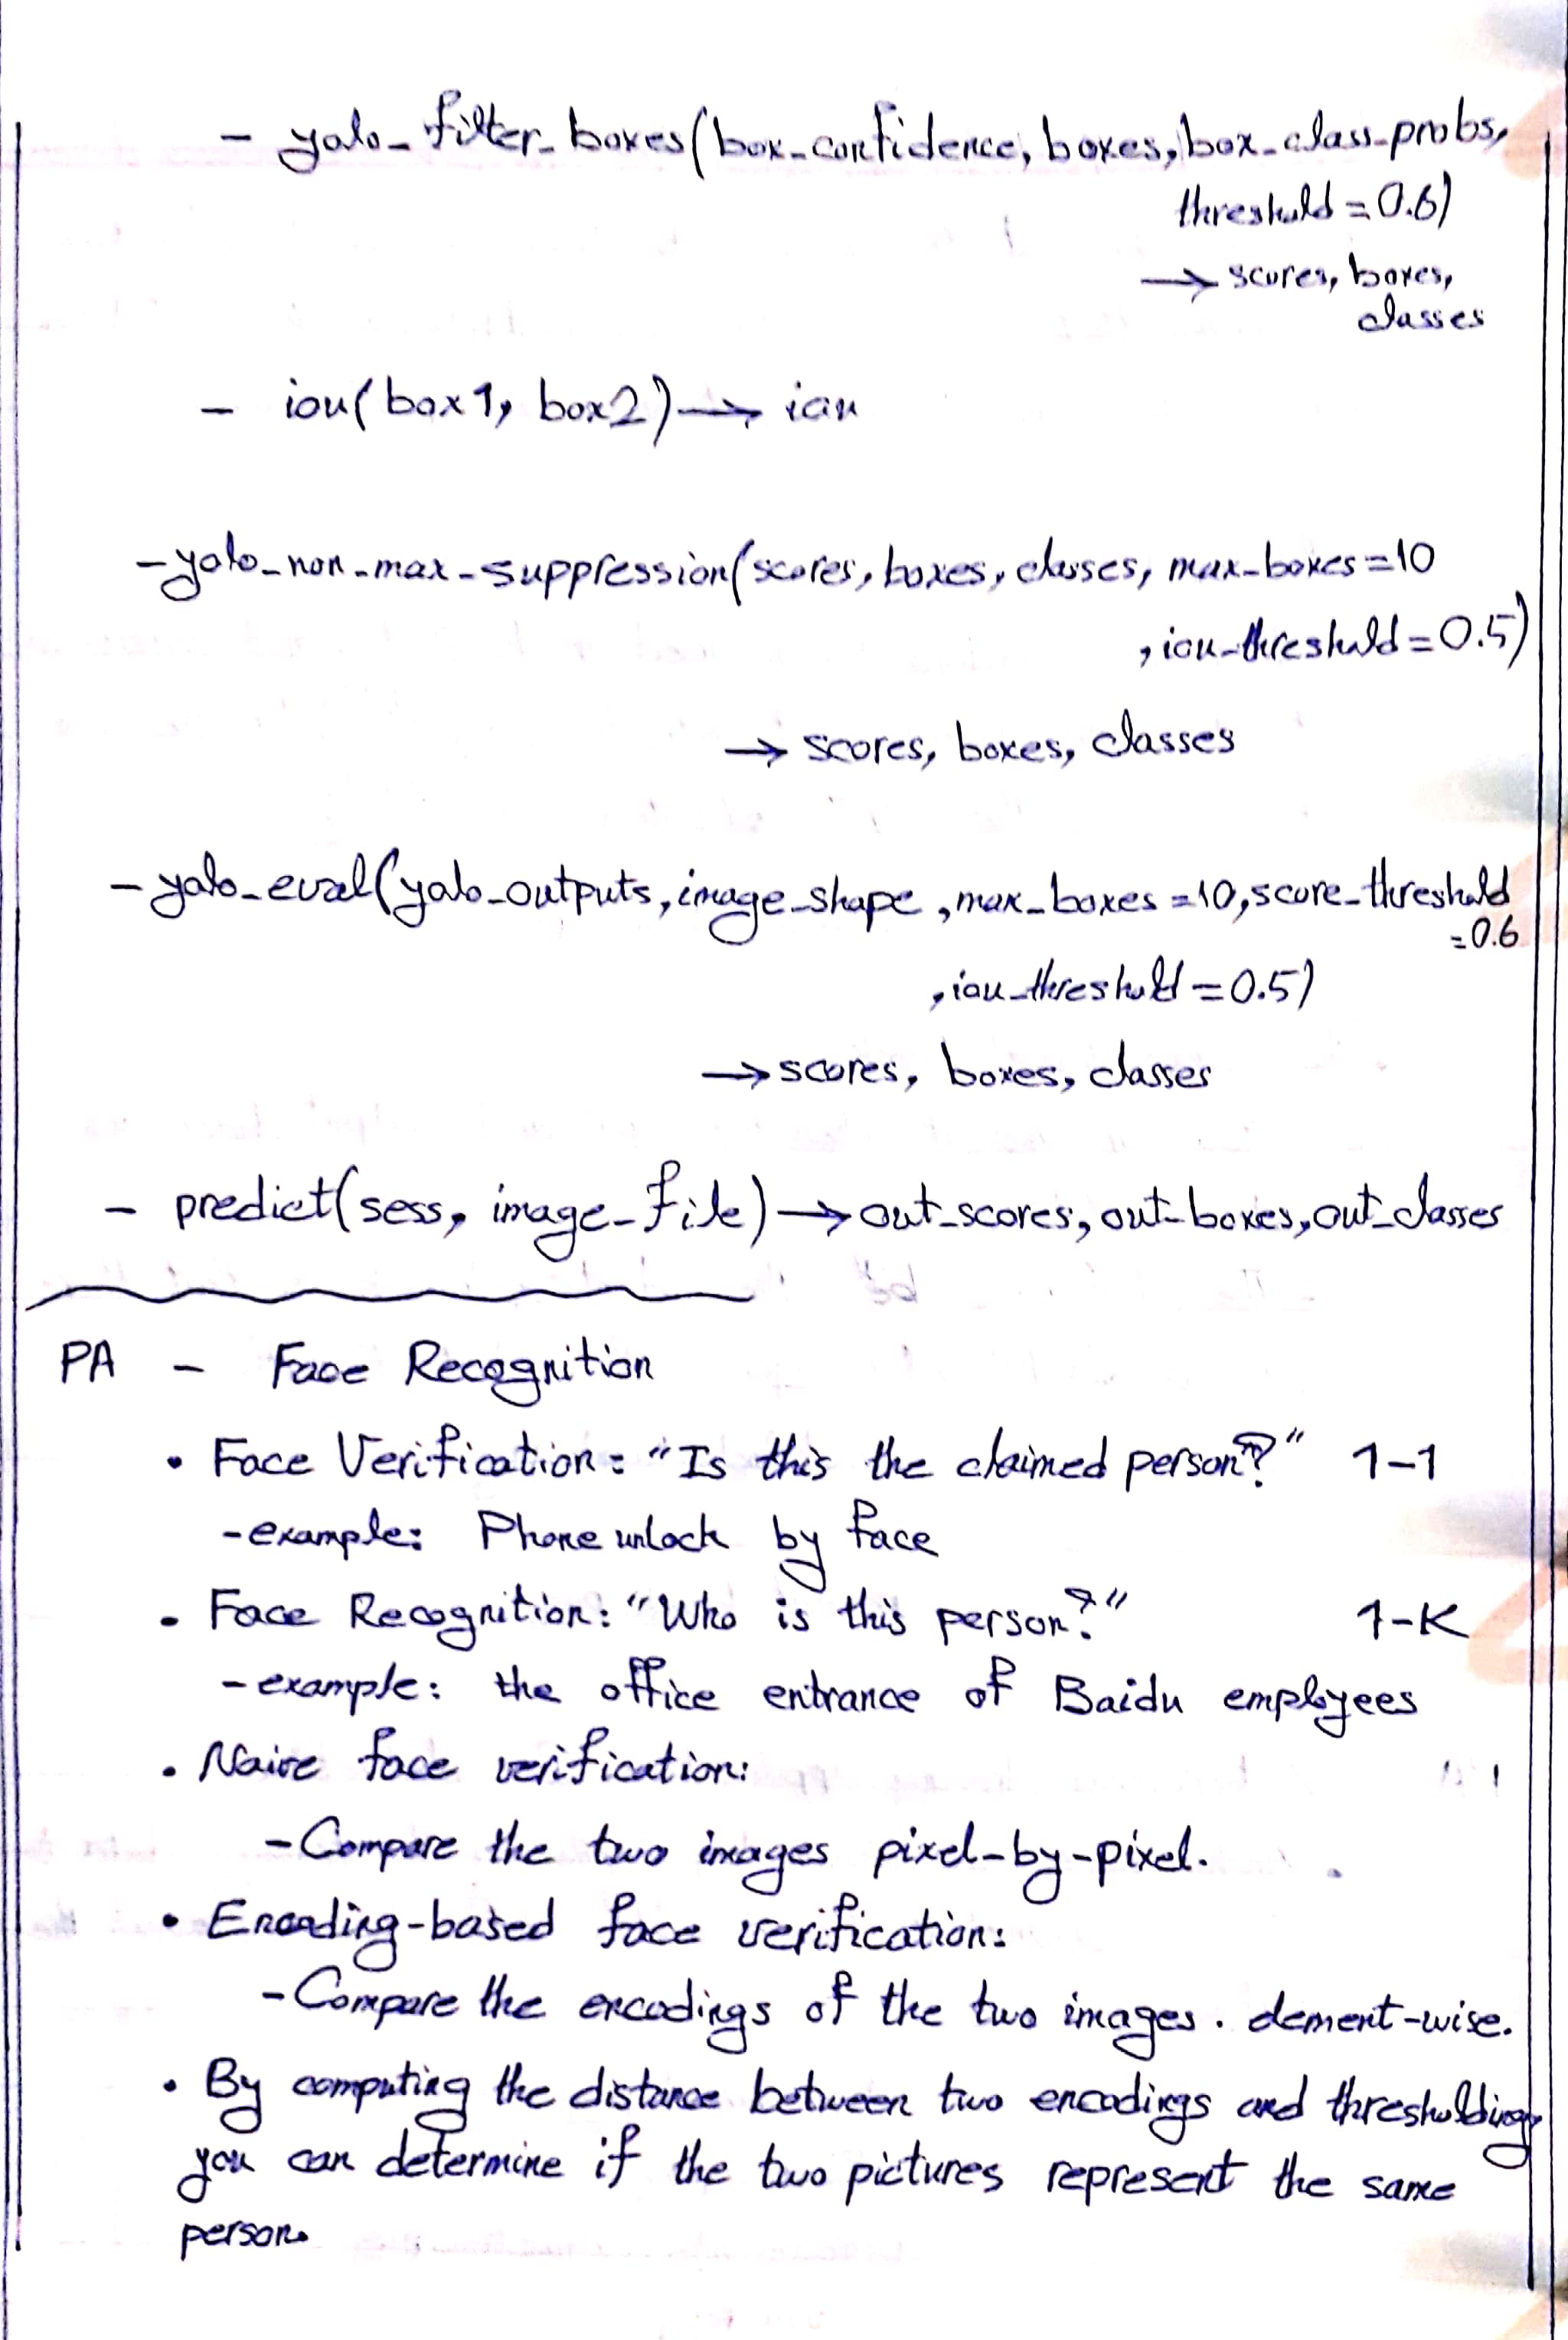 - yolo_filter_boxes(box_confidence, boxes, box_class_probs,
threshold = 0.6)
→ scores, boxes,
classes
- iou(box1, box2) → iou
- yolo_non_max_suppression(scores, boxes, classes, max_boxes=10
, iou_threshold = 0.5)
→ scores, boxes, classes
- yolo_eval(yolo_outputs, image_shape, max_boxes = 10, score_threshold
= 0.6
, iou_threshold = 0.5)
→ scores, boxes, classes
- predict(sess, image_file) → out_scores, out_boxes, out_classes
PA - Face Recognition
• Face Verification: "Is this the claimed person?" 1-1
- example: Phone unlock by face
• Face Recognition: "Who is this person?" 1-K
- example: the office entrance of Baidu employees
• Naive face verification:
- Compare the two images pixel-by-pixel.
• Encoding-based face verification:
- Compare the encodings of the two images. element-wise.
• By computing the distance between two encodings and thresholding,
you can determine if the two pictures represent the same
person.